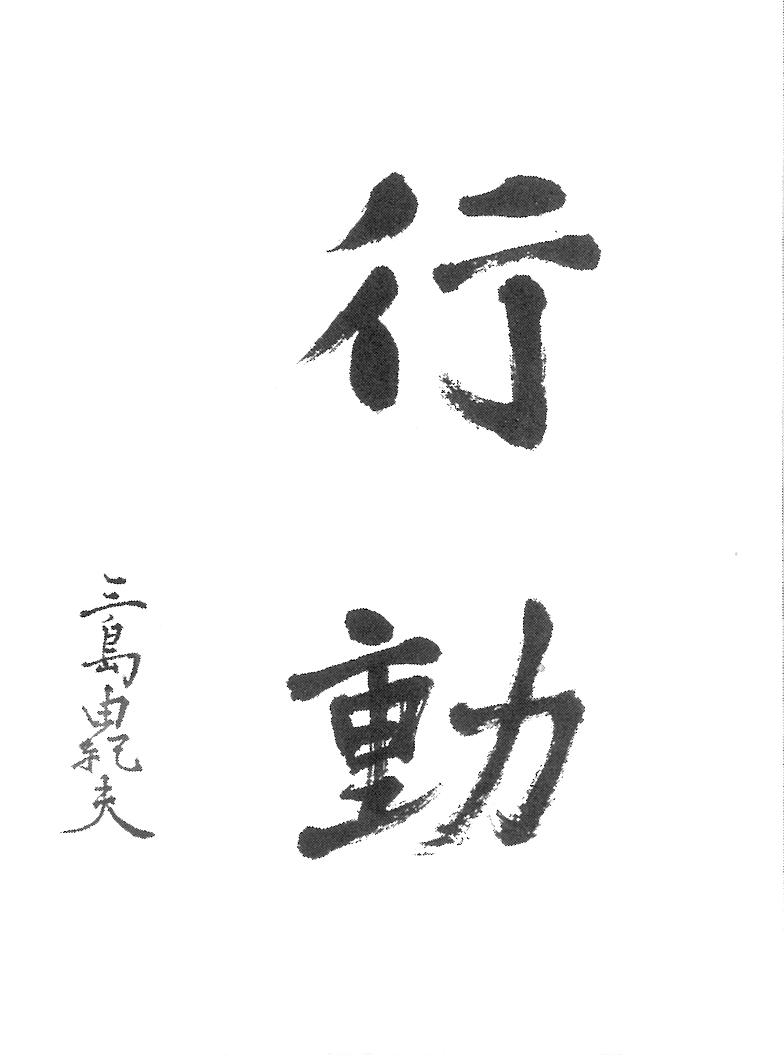 行動
三島由紀夫